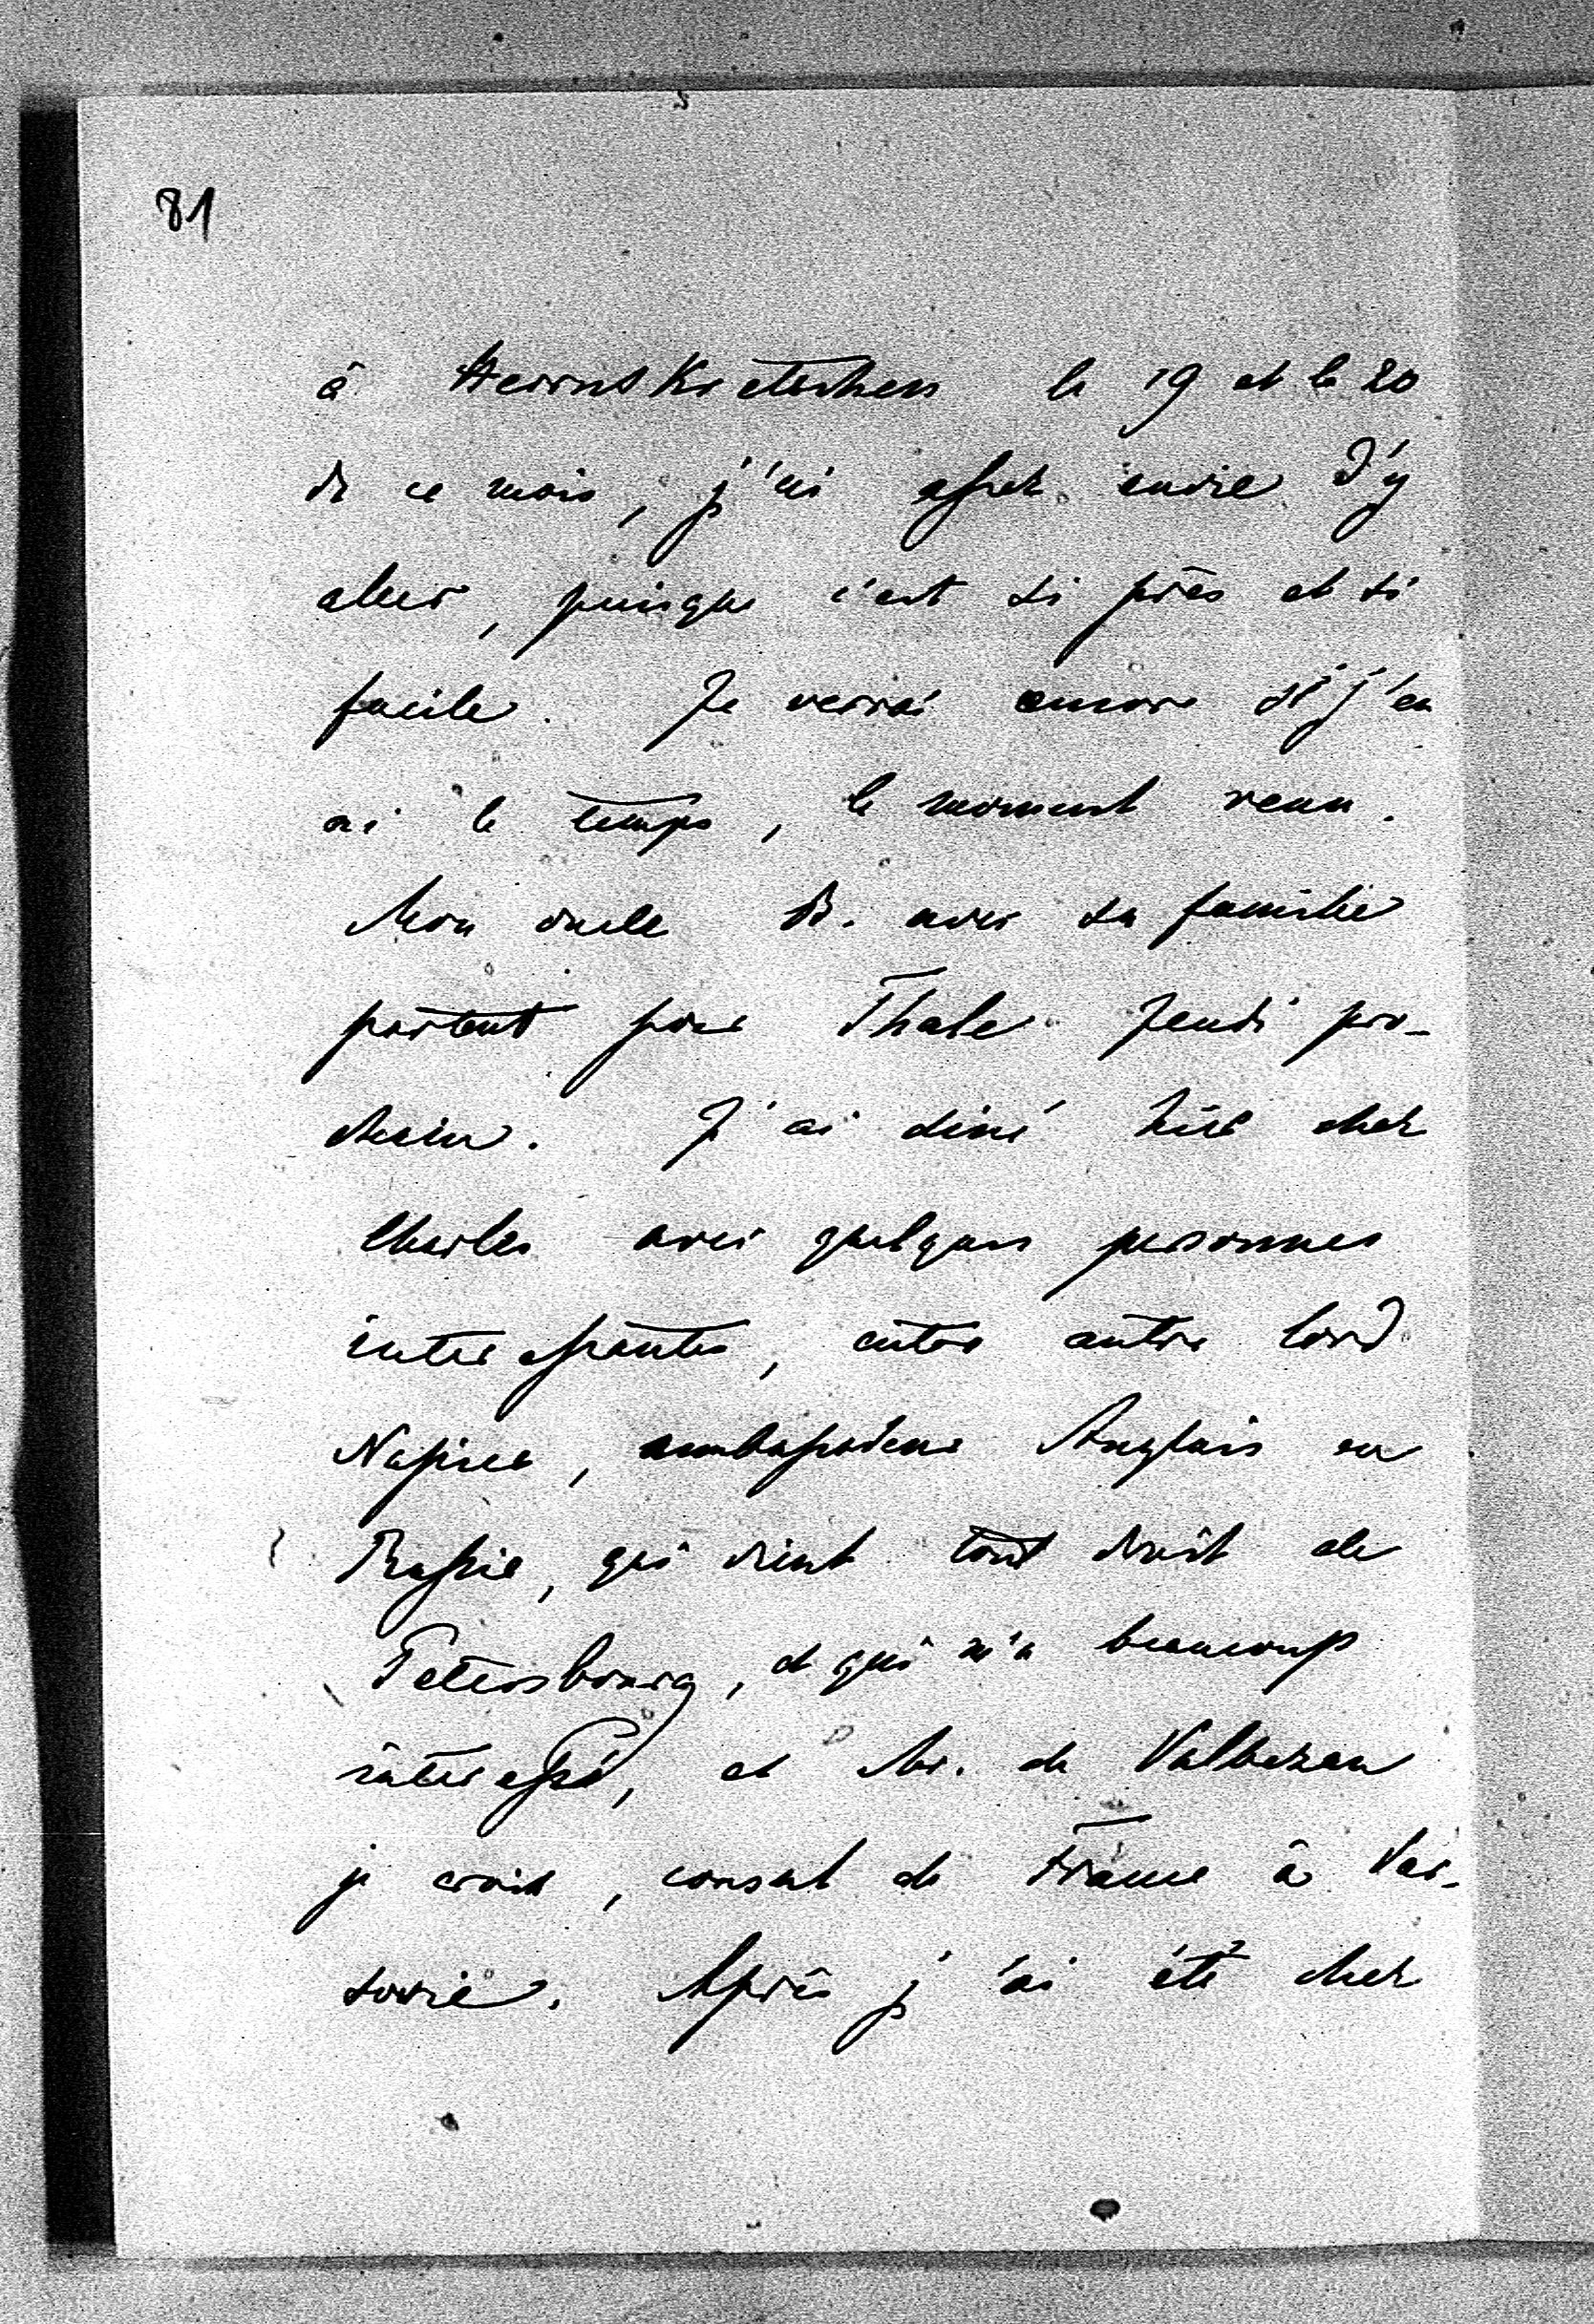 81
à Herrnskretschen le 19 et le 20
de ce mois, j'ai assez envie d'y
aller, puisque c'est si près et si
facile. Je verrai encore si j'en
ai le temps, le moment venu.
Mon oncle B. avec sa famille
partent pour Thale Jeudi pro-
chain. J'ai diné hier chez
Charles avec quelques personnes
interessantes, entre autre Lord
Napier, ambassadeur Anglais en
Russie, qui vient tout droit de
Petersbourg, et qui m'a beaucoup
interessé, et Mr. de Valbezen
je crois, consul de France à Var-
sovie. Après j'ai été chez